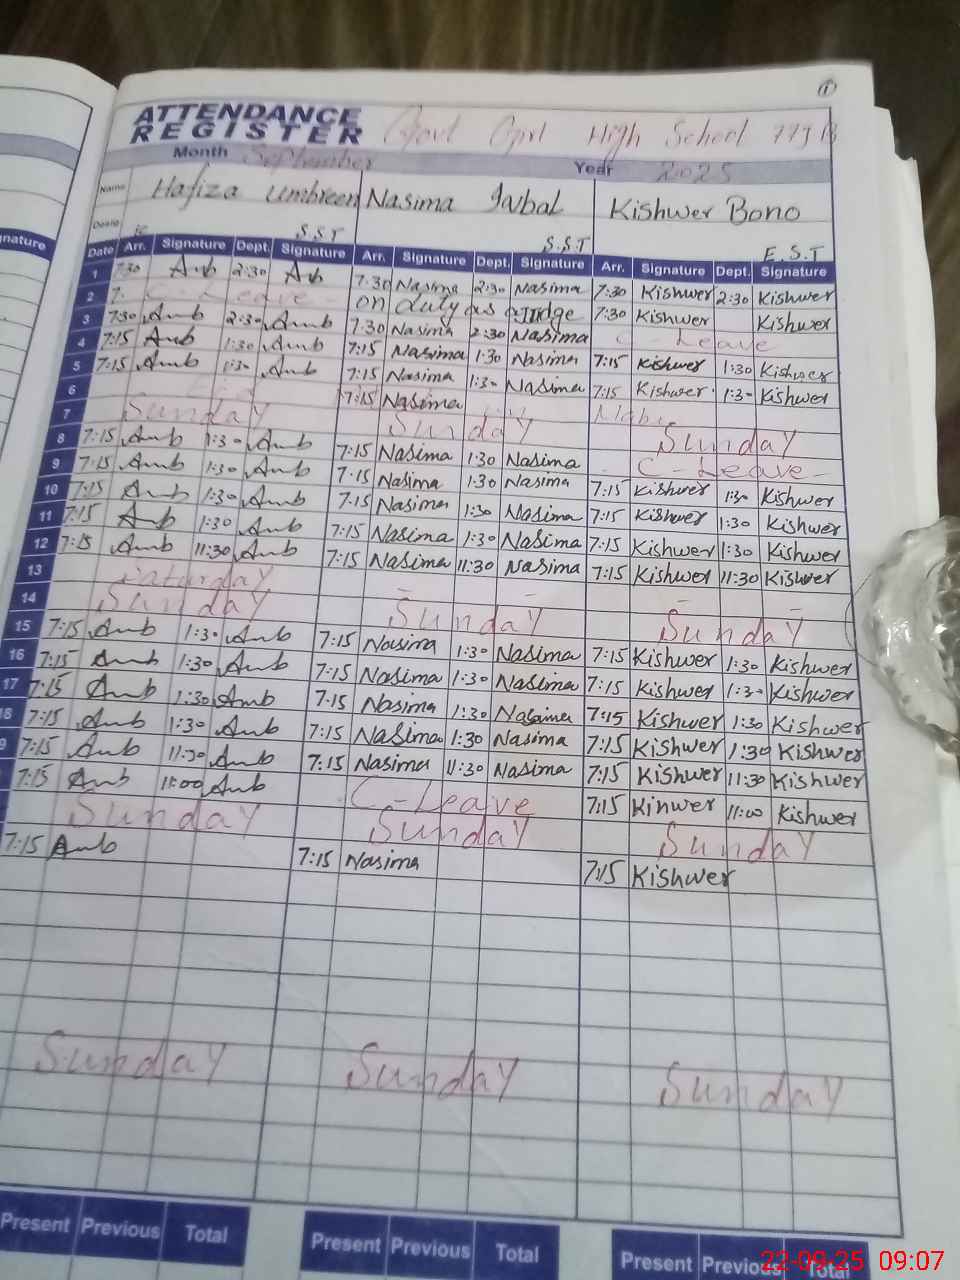 1
ATTENDANCE
REGISTER Govt Girl High School 77JB
Month September Year 2025
Name Hafiza Umbreen Nasima Iqbal Kishwer Bono
S.S.T S.S.T E.S.T
nature Date Arr. Signature Dept. Signature Arr. Signature Dept. Signature Arr. Signature Dept. Signature
1 7:30 Amb 2:30 Amb 7:30 Nasima 2:30 Nasima 7:30 Kishwer 2:30 Kishwer
2 C-Leave on duty as Judge 7:30 Kishwer Kishwer
3 7:30 Amb 2:30 Amb 7:30 Nasima 2:30 Nasima C-Leave
4 7:15 Amb 1:30 Amb 7:15 Nasima 1:30 Nasima 7:15 Kishwer 1:30 Kishwer
5 7:15 Amb 1:30 Amb 7:15 Nasima 1:30 Nasima 7:15 Kishwer 1:30 Kishwer
6 7:15 Nasima
7 Sunday Sunday Sunday
8 7:15 Amb 1:30 Amb 7:15 Nasima 1:30 Nasima C-Leave
9 7:15 Amb 1:30 Amb 7:15 Nasima 1:30 Nasima 7:15 Kishwer 1:30 Kishwer
10 7:15 Amb 1:30 Amb 7:15 Nasima 1:30 Nasima 7:15 Kishwer 1:30 Kishwer
11 7:15 Amb 1:30 Amb 7:15 Nasima 1:30 Nasima 7:15 Kishwer 1:30 Kishwer
12 7:15 Amb 11:30 Amb 7:15 Nasima 11:30 Nasima 7:15 Kishwer 11:30 Kishwer
13 Saturday
14 Sunday Sunday Sunday
15 7:15 Amb 1:30 Amb 7:15 Nasima 1:30 Nasima 7:15 Kishwer 1:30 Kishwer
16 7:15 Amb 1:30 Amb 7:15 Nasima 1:30 Nasima 7:15 Kishwer 1:30 Kishwer
17 7:15 Amb 1:30 Amb 7:15 Nasima 1:30 Nasima 7:15 Kishwer 1:30 Kishwer
18 7:15 Amb 1:30 Amb 7:15 Nasima 1:30 Nasima 7:15 Kishwer 1:30 Kishwer
9 7:15 Amb 11:30 Amb 7:15 Nasima 11:30 Nasima 7:15 Kishwer 11:30 Kishwer
7:15 Amb 11:00 Amb C-Leave 7:15 Kinwer 11:00 Kishwer
Sunday Sunday Sunday
7:15 Amb 7:15 Nasima 7:15 Kishwer
Sunday Sunday Sunday
Present Previous Total Present Previous Total Present Previous Total
22-09-25 09:07